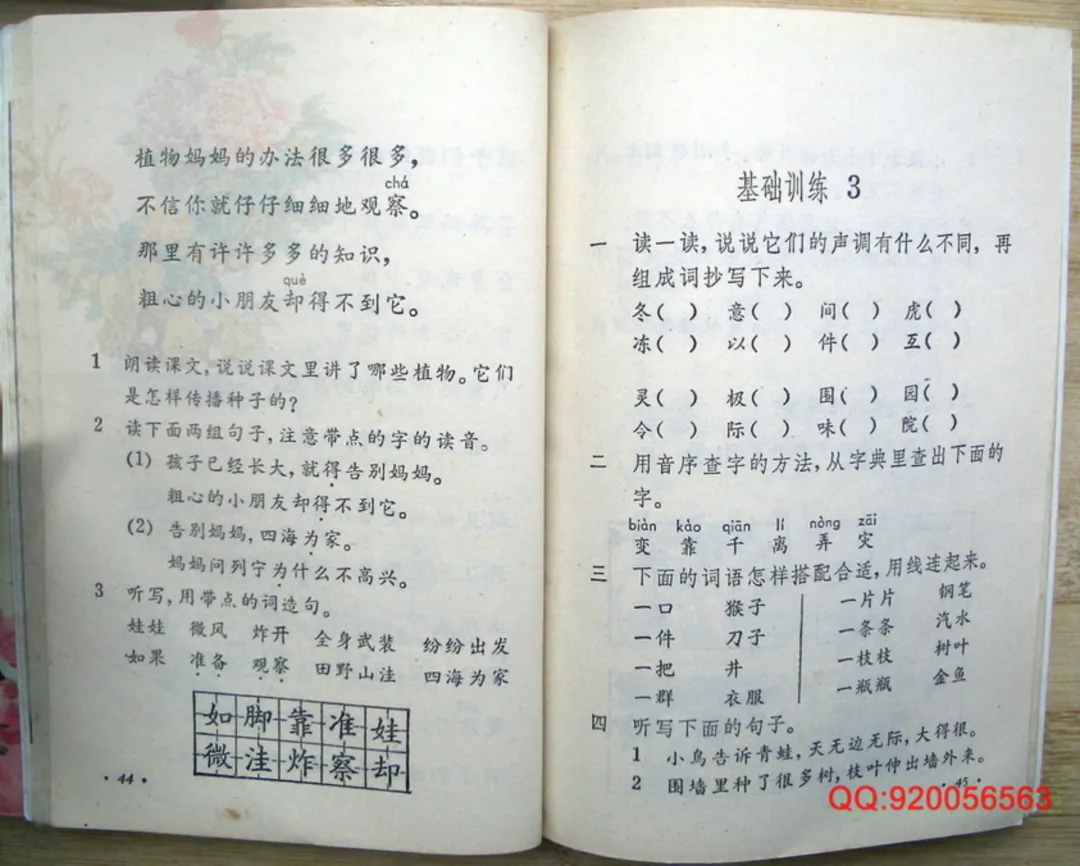 植物妈妈的办法很多很多，
chá
不信你就仔仔细细地观察。
那里有许许多多的知识，
què
粗心的小朋友却得不到它。
1 朗读课文，说说课文里讲了哪些植物。它们
是怎样传播种子的？
2 读下面两组句子，注意带点的字的读音。
(1) 孩子已经长大，就得告别妈妈。
粗心的小朋友却得不到它。
(2) 告别妈妈，四海为家。
妈妈问列宁为什么不高兴。
3 听写，用带点的词造句。
娃娃 微风 炸开 全身武装 纷纷出发
如果 准备 观察 田野山洼 四海为家
如脚靠准娃
微洼炸察却
·44·
基础训练 3
一 读一读，说说它们的声调有什么不同，再
组成词抄写下来。
冬( ) 意( ) 间( ) 虎( )
冻( ) 以( ) 件( ) 互( )
灵( ) 极( ) 围( ) 园( )
令( ) 际( ) 味( ) 院( )
二 用音序查字的方法，从字典里查出下面的
字。
biàn kào qiān lí nòng zāi
变 靠 千 离 弄 灾
三 下面的词语怎样搭配合适，用线连起来。
一口 猴子 一片片 钢笔
一件 刀子 一条条 汽水
一把 井 一枝枝 树叶
一群 衣服 一瓶瓶 金鱼
四 听写下面的句子。
1 小鸟告诉青蛙，天无边无际，大得很。
2 围墙里种了很多树，枝叶伸出墙外来。
·45·
QQ:920056563